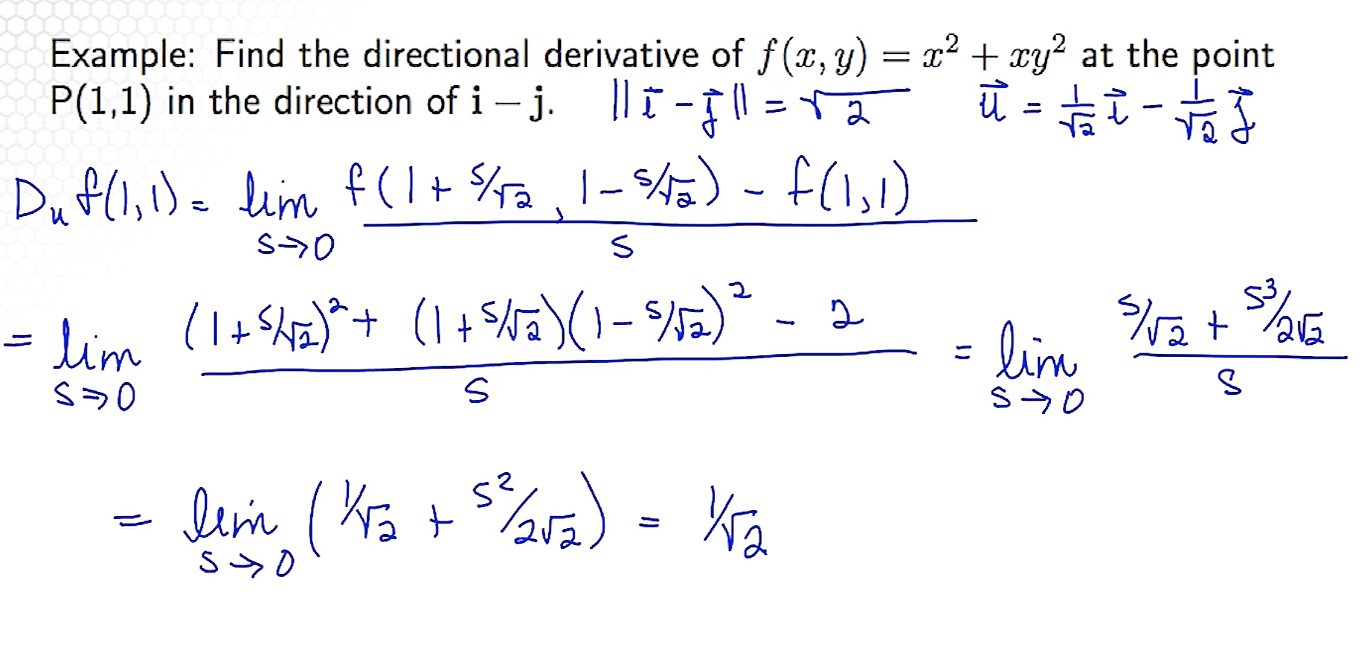 Example: Find the directional derivative of f(x, y) = x² + xy² at the point
P(1,1) in the direction of i − j. ||i⃗ − j⃗|| = √2 u⃗ = 1/√2 i⃗ − 1/√2 j⃗
D_u f(1,1) = lim_{s→0} (f(1 + s/√2, 1 − s/√2) − f(1,1)) / s
= lim_{s→0} ((1 + s/√2)² + (1 + s/√2)(1 − s/√2)² − 2) / s = lim_{s→0} (s/√2 + s³/2√2) / s
= lim_{s→0} (1/√2 + s²/2√2) = 1/√2